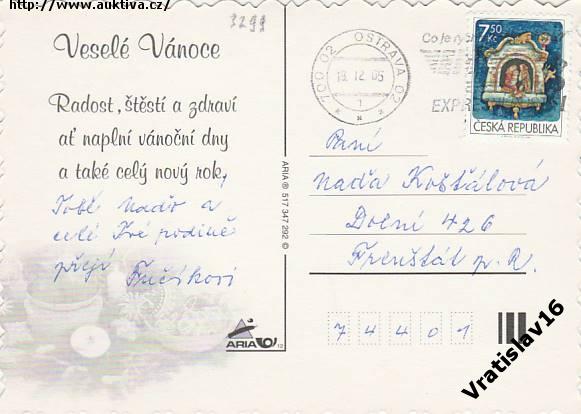 http://www.auktiva.cz/
3299
Veselé Vánoce
Radost, štěstí a zdraví
ať naplní vánoční dny
a také celý nový rok,
Tobě Naďo a
celé Tvé rodině
přejí Fučíkovi
ARIA ® 517 347 292 ©
ARIA 12
700 02 OSTRAVA 02
19.12.05
1
Co je rychlé
EXPRE
7,50
Kč
ČESKÁ REPUBLIKA
Paní
Naďa Košťálová
Dolní 426
Frenštát p. R.
74401
Vratislav16